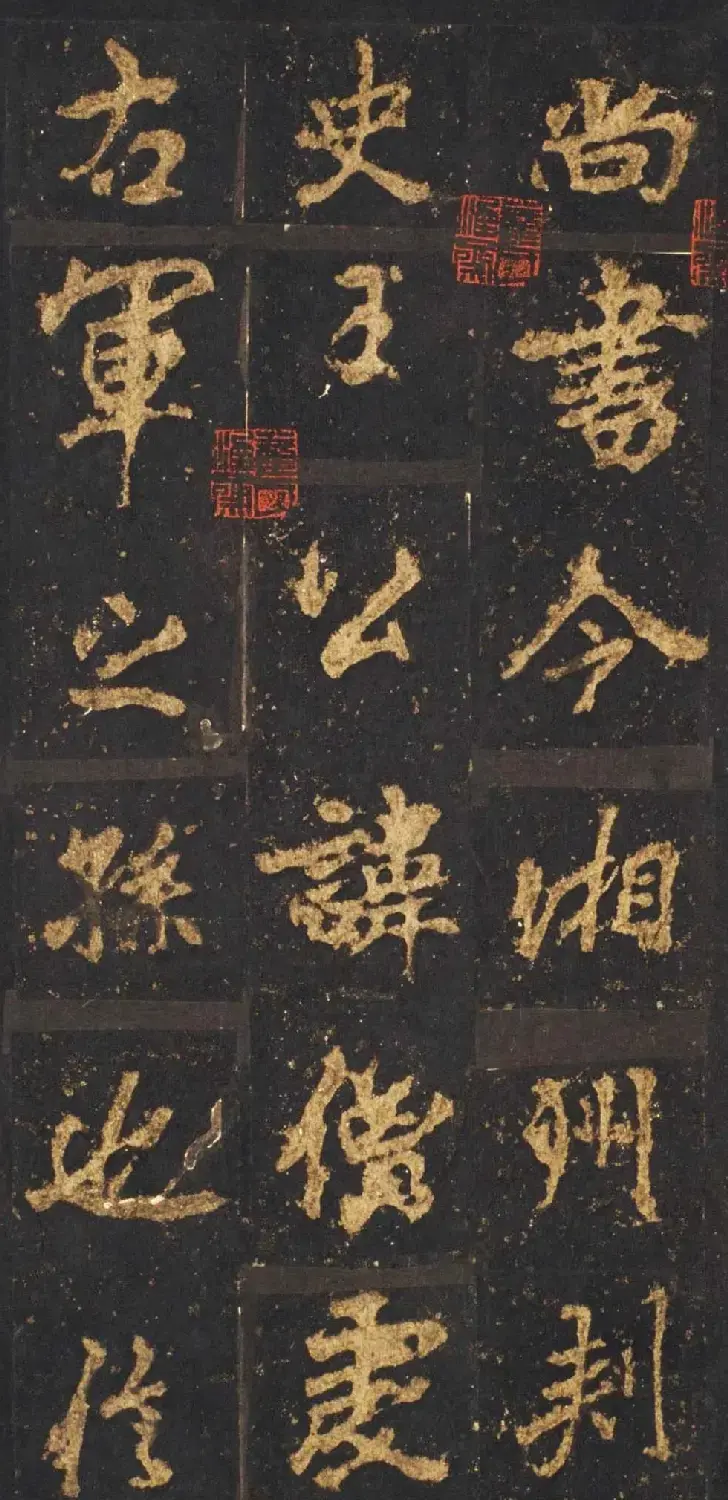 尚書令湘州刺
史王公諱僧虔
右軍之孫也